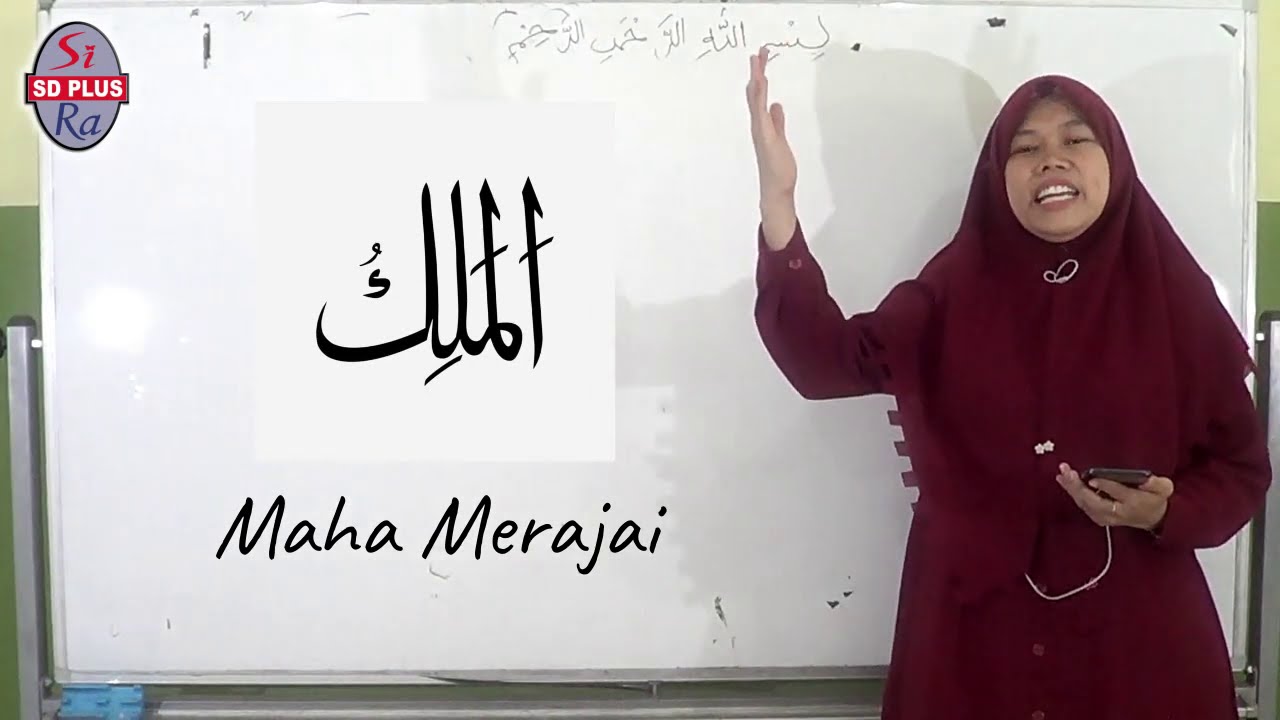 Si
SD PLUS
Ra
بِسْمِ اللّٰهِ الرَّحْمَنِ الرَّحِيْمِ
الْمَلِكُ
Maha Merajai